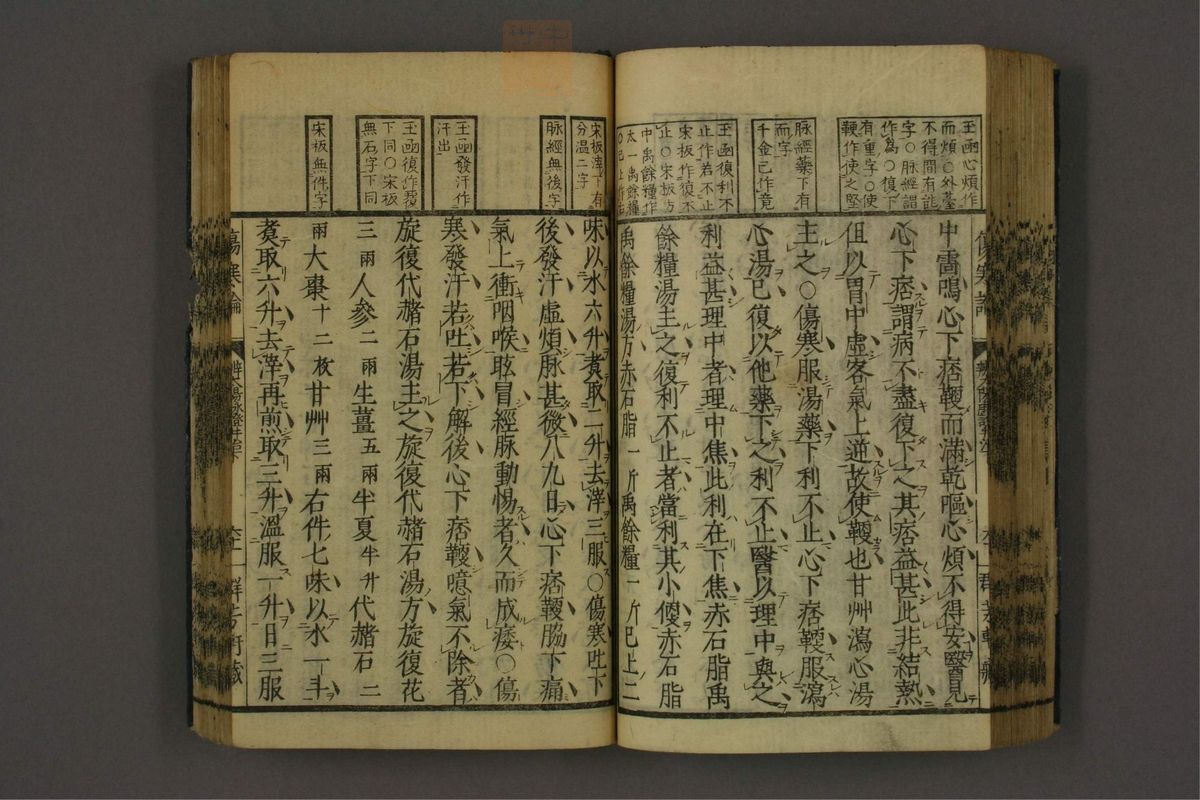 玉函心煩作
而煩○外臺
不得間有能
字○脉經謂
作爲○復下
有重字○使
鞕作使之堅
脉經藥下有
而字
千金已作竟
玉函復利不
止作若不止
宋板作復不
止○宋板方
中禹餘糧作
太一禹餘糧
○已上作右
中雷鳴心下痞鞕而滿乾嘔心煩不得安醫見
心下痞謂病不盡復下之其痞益甚此非結熱
但以胃中虛客氣上逆故使鞕也甘艸瀉心湯
主之○傷寒服湯藥下利不止心下痞鞕服瀉
心湯已復以他藥下之利不止醫以理中與之
利益甚理中者理中焦此利在下焦赤石脂禹
餘糧湯主之復利不止者當利其小便赤石脂
禹餘糧湯方赤石脂一斤禹餘糧一斤已上二
宋板滓下有
分温二字
脉經無後字
玉函發汗作
汗出
玉函復作覆
下同○宋板
無石字下同
宋板無件字
味以水六升煑取二升去滓三服○傷寒吐下
後發汗虛煩脉甚微八九日心下痞鞕脇下痛
氣上衝咽喉眩冒經脉動惕者久而成痿○傷
寒發汗若吐若下解後心下痞鞕噫氣不除者
旋復代赭石湯主之旋復代赭石湯方旋復花
三兩人參二兩生薑五兩半夏半升代赭石二
兩大棗十二枚甘艸三兩右件七味以水一斗
煑取六升去滓再煎取三升溫服一升日三服
傷寒論